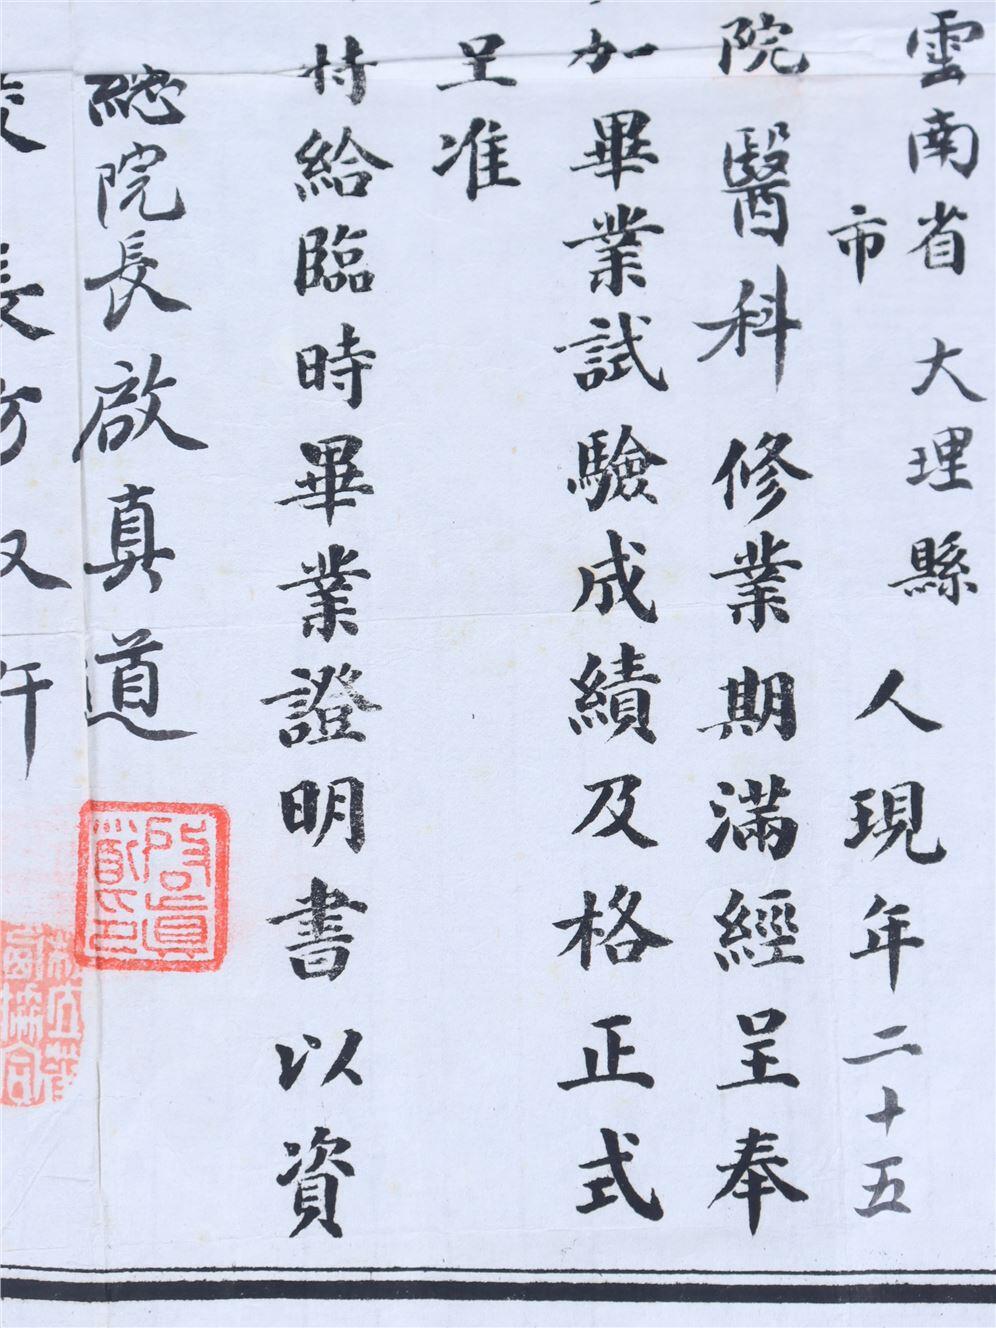 雲南省大理縣
市
人現年二十五
院醫科修業期滿經呈奉
加畢業試驗成績及格正式
呈准
給臨時畢業證明書以資
總院長啟真道
長
午
啟真道印